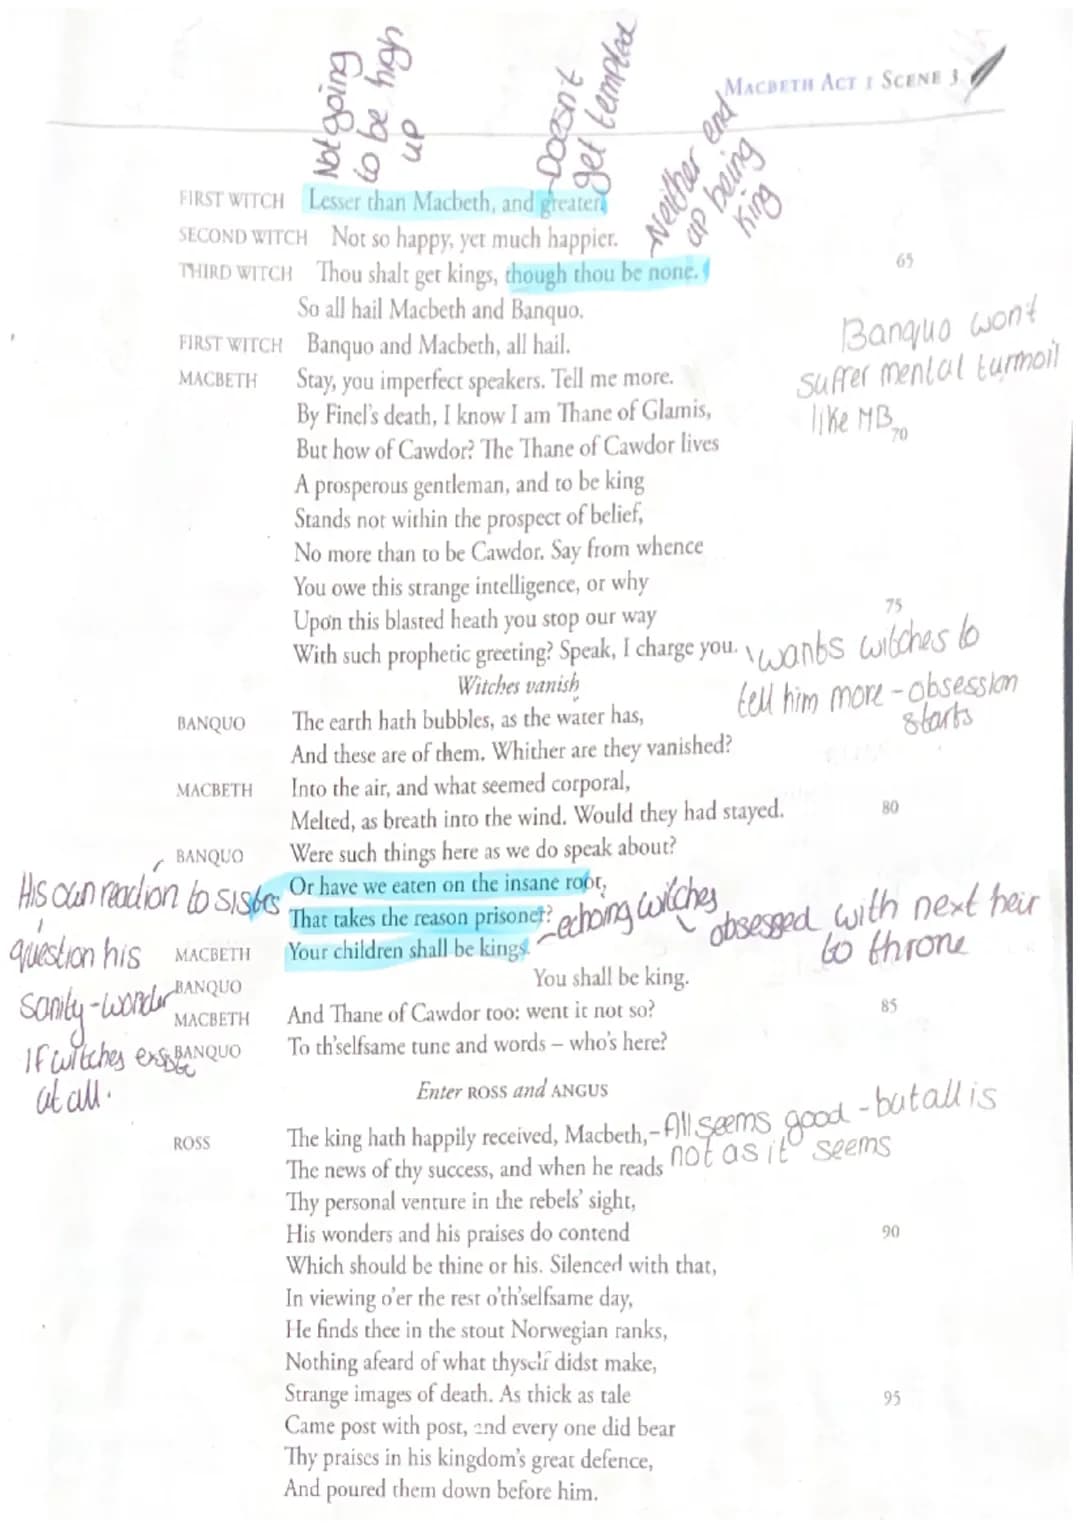 MACBETH ACT 1 SCENE 3
Not going
to be high
up
Doesn't
get tempted
Neither end
up being
king
FIRST WITCH Lesser than Macbeth, and greater.
SECOND WITCH Not so happy, yet much happier.
THIRD WITCH Thou shalt get kings, though thou be none. 65
So all hail Macbeth and Banquo.
FIRST WITCH Banquo and Macbeth, all hail.
Banquo wont
suffer mental turmoil
like MB
MACBETH Stay, you imperfect speakers. Tell me more.
By Finel's death, I know I am Thane of Glamis,
But how of Cawdor? The Thane of Cawdor lives 70
A prosperous gentleman, and to be king
Stands not within the prospect of belief,
No more than to be Cawdor. Say from whence
You owe this strange intelligence, or why
Upon this blasted heath you stop our way 75
With such prophetic greeting? Speak, I charge you.
wants witches to
tell him more - obsession
starts
Witches vanish
BANQUO The earth hath bubbles, as the water has,
And these are of them. Whither are they vanished?
MACBETH Into the air, and what seemed corporal,
Melted, as breath into the wind. Would they had stayed. 80
BANQUO Were such things here as we do speak about?
Or have we eaten on the insane root,
That takes the reason prisoner?
His own reaction to sisters
question his
sanity - wonder
if witches exsiste
at all.
MACBETH Your children shall be kings.
- echoing witches
obsessed with next heir
to throne
BANQUO You shall be king.
MACBETH And Thane of Cawdor too: went it not so? 85
BANQUO To th'selfsame tune and words – who's here?
Enter ROSS and ANGUS
ROSS The king hath happily received, Macbeth,
- All seems good - but all is
not as it seems
The news of thy success, and when he reads
Thy personal venture in the rebels' sight,
His wonders and his praises do contend 90
Which should be thine or his. Silenced with that,
In viewing o'er the rest o'th'selfsame day,
He finds thee in the stout Norwegian ranks,
Nothing afeard of what thyself didst make,
Strange images of death. As thick as tale 95
Came post with post, and every one did bear
Thy praises in his kingdom's great defence,
And poured them down before him.